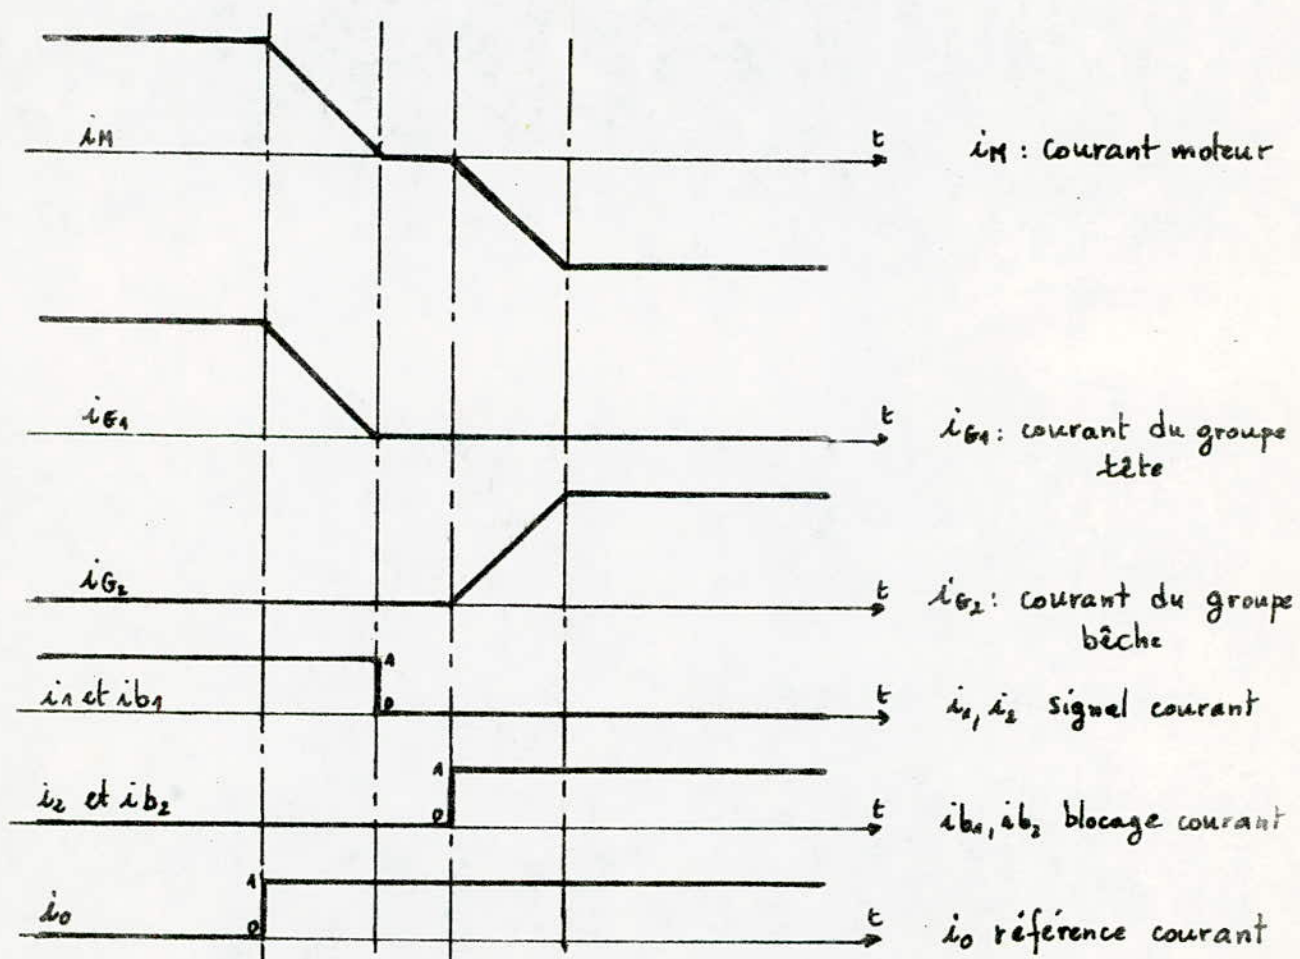 iM
t
iM : courant moteur
iG1
t
iG1 : courant du groupe
tête
iG2
t
iG2 : courant du groupe
bêche
i1 et ib1
1
0
t
i1, i2 signal courant
i2 et ib2
1
0
t
ib1, ib2 blocage courant
i0
1
0
t
i0 référence courant